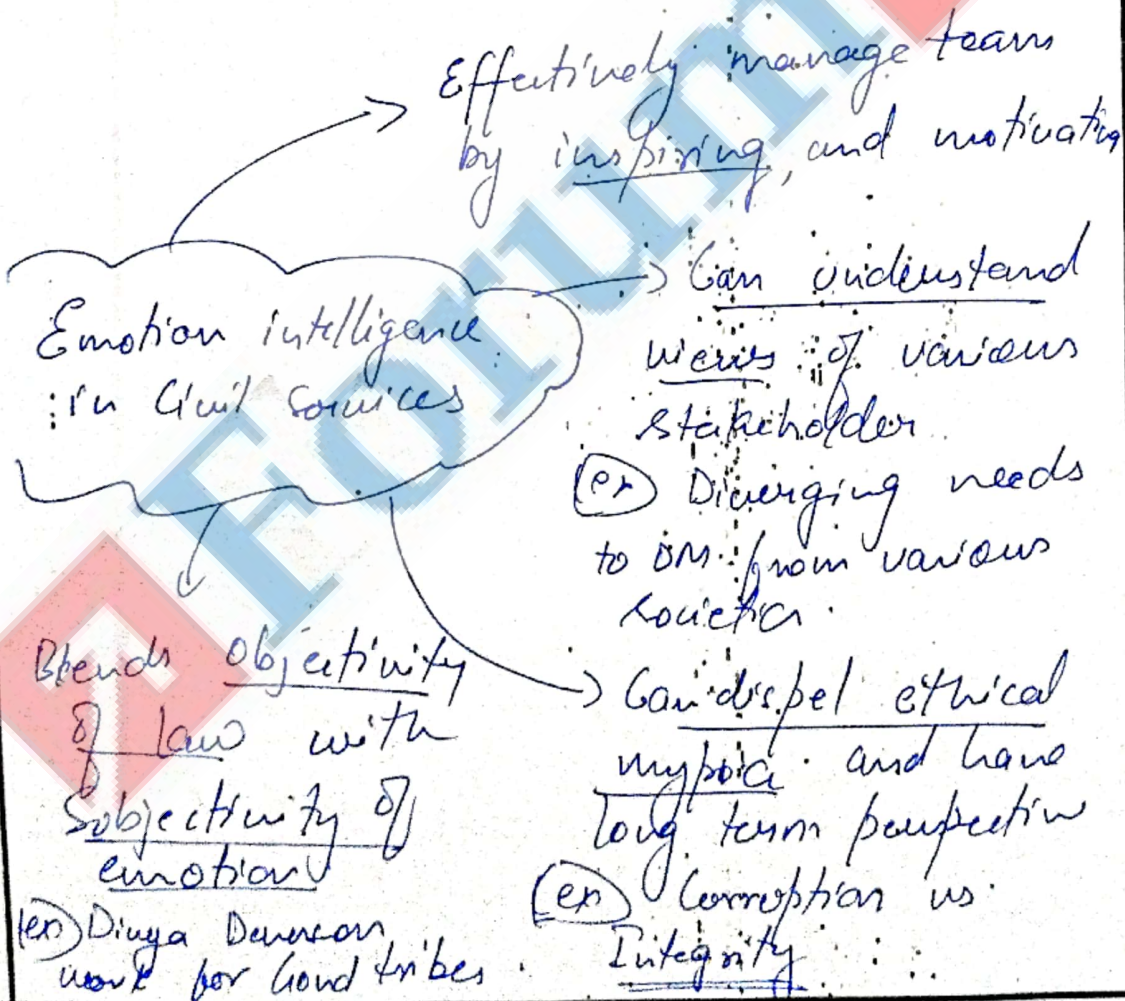 Effectively manage team
by inspiring, and motivating
Emotion intelligence
in Civil Services
Can understand
views of various
stakeholder
(ex) Diverging needs
to DM from various
societies
Blends objectivity
of law with
subjectivity of
emotion
(ex) Divya Devarajan
work for Gond tribes.
Can dispel ethical
mypoia and have
long term perspective
(ex) Corruption vs
Integrity
Forum